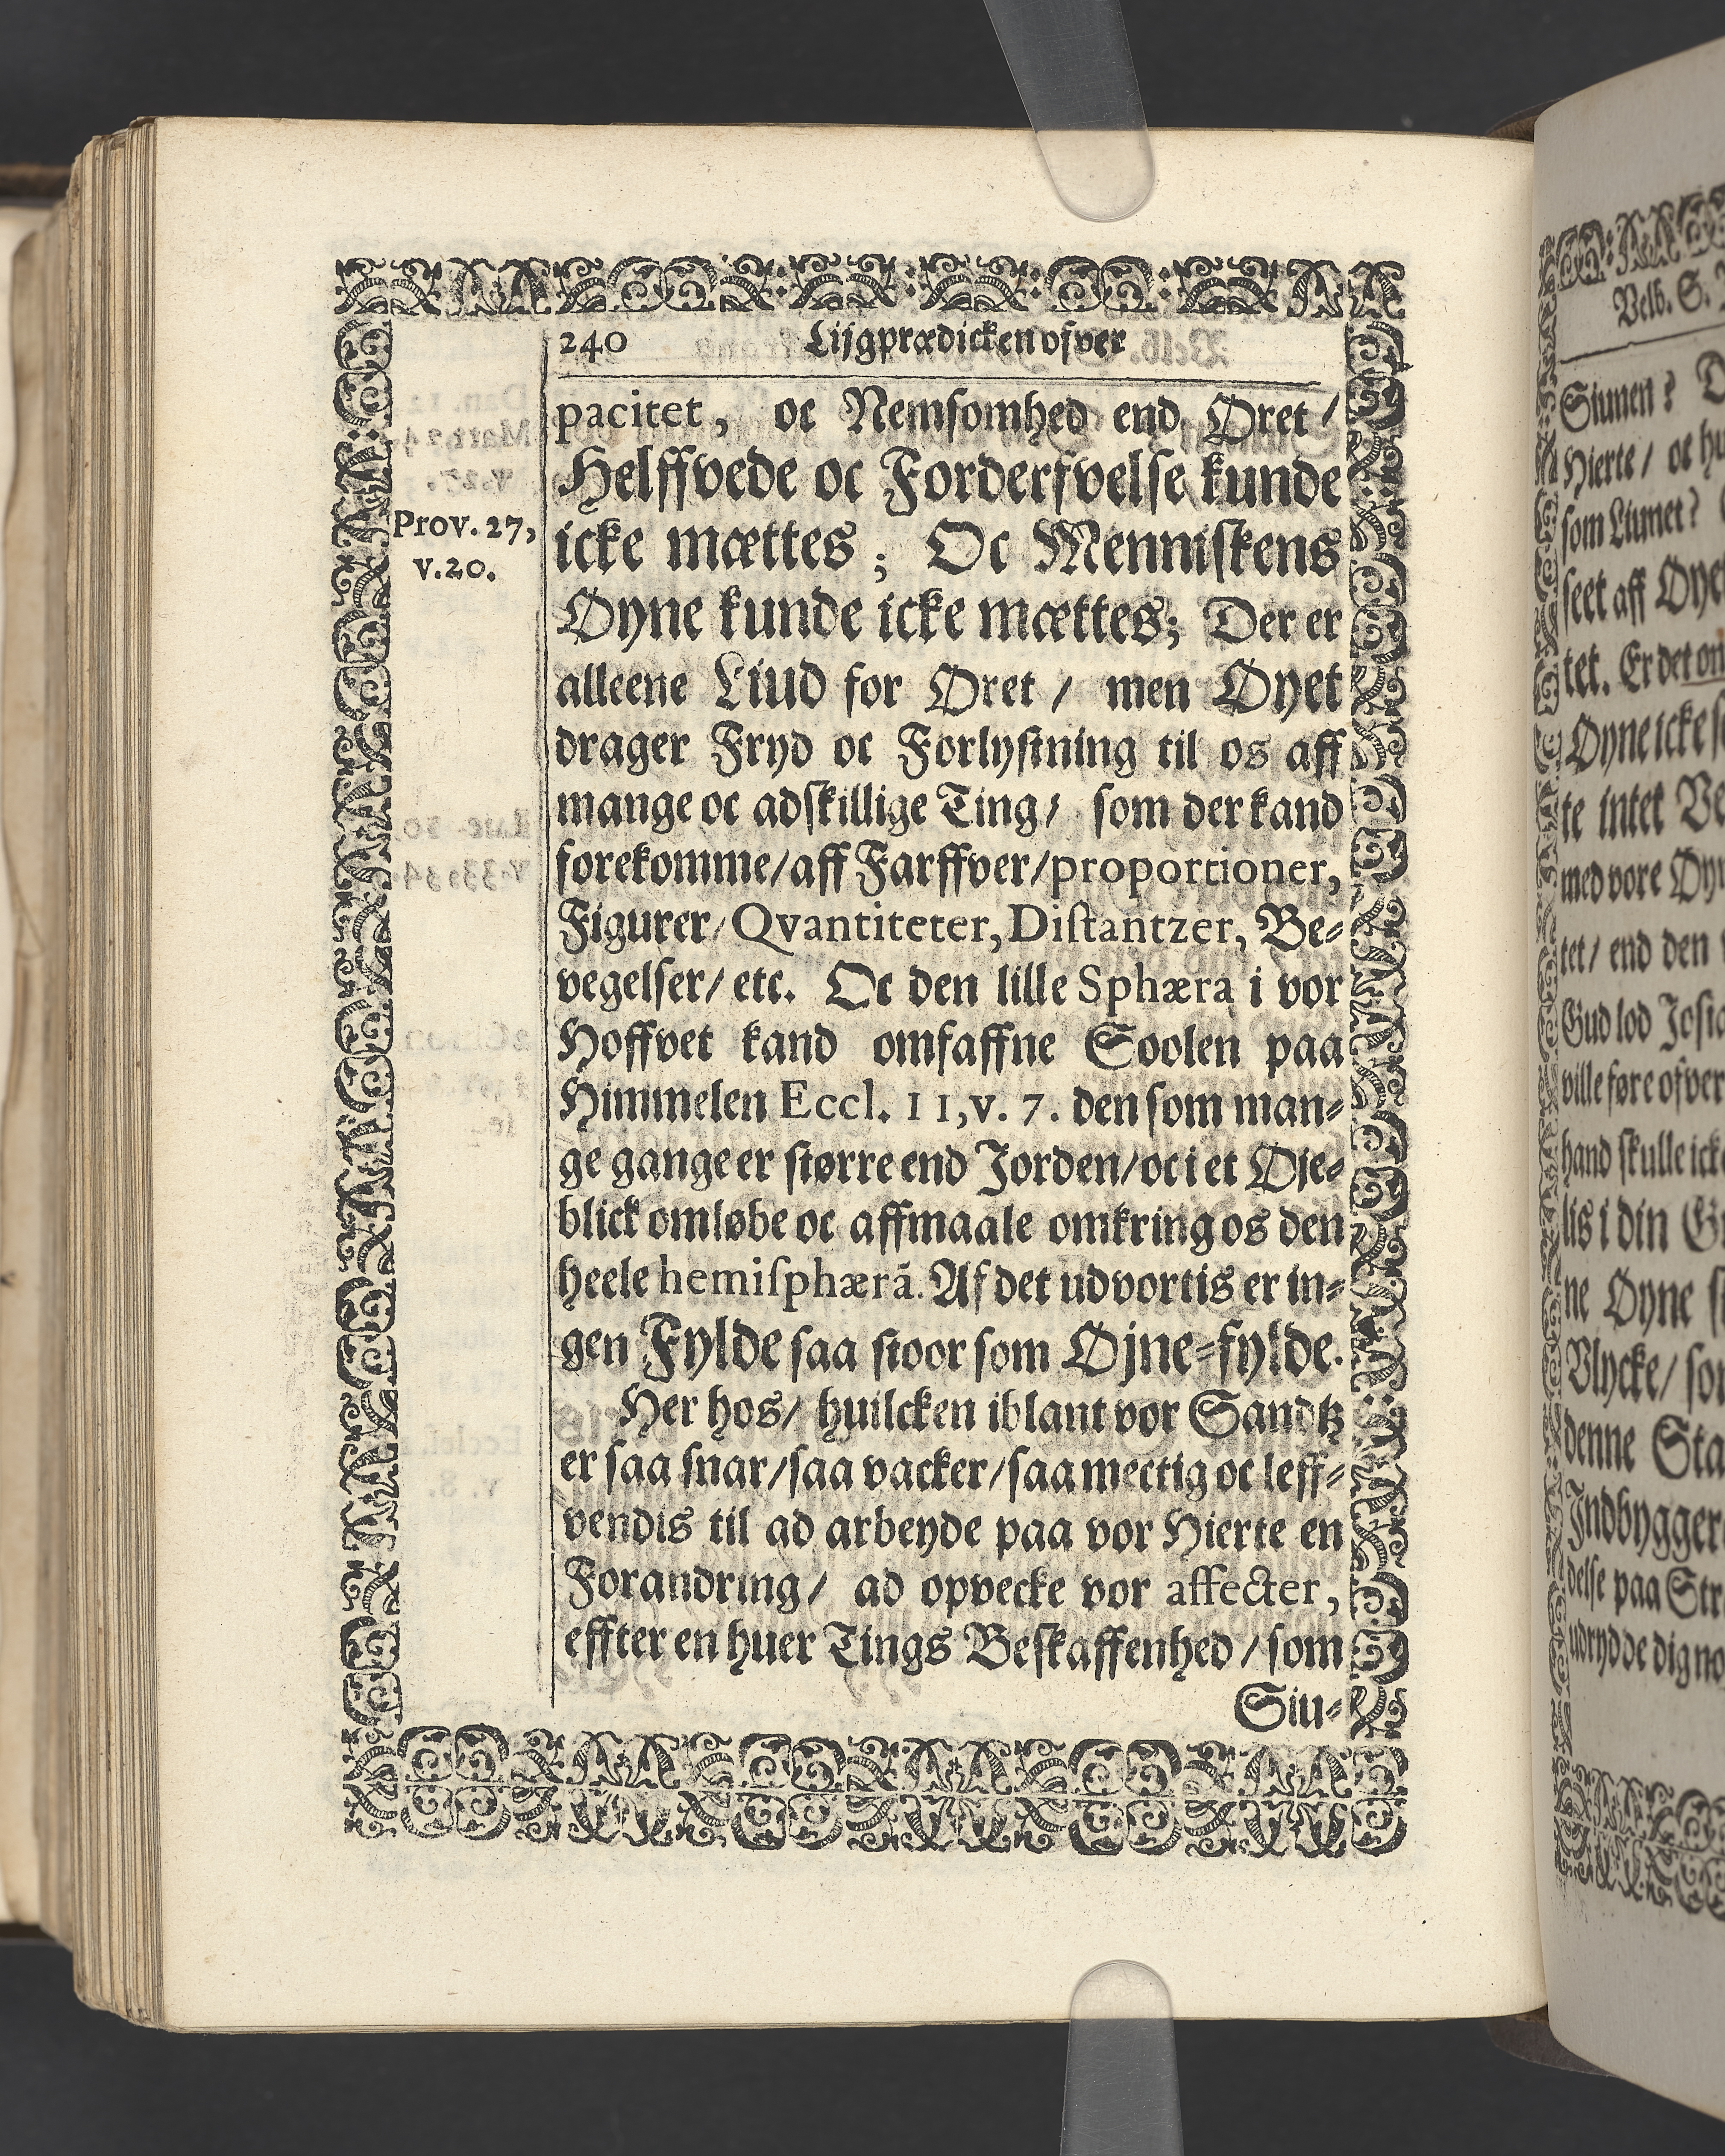 240 Lijgprædicken ofver
pacitet, oc Nemsomhed end Øret /
Helffvede oc Forderfvelse kunde
Prov. 27,
v.20.
icke mættes; Oc Menniskens
Øyne kunde icke mættes; Der er
alleene Liud for Øret / men Øyet
drager Fryd oc Forlystning til os aff
mange oc adskillige Ting / som der kand
forekomme / aff Farffver / proportioner,
Figurer / Qvantiteter, Distantzer, Be-
vegelser / etc. Oc den lille Sphæra i vor
Hoffvet kand omfaffne Soolen paa
Himmelen Eccl. 11, v. 7. den som man-
ge gange er større end Jorden / oc i et Øje-
blick omløbe oc affmaale omkring os den
heele hemisphærā. Af det udvortis er in-
gen Fylde saa stoor som Øjne-fylde.
Her hos / huilcken iblant vor Sandtz
er saa snar / saa vacker / saa mectig oc leff-
vendis til ad arbeyde paa vor Hierte en
Forandring / ad opvecke vor affecter,
effter en huer Tings Beskaffenhed / som
Siu-
Velb. S.
Siunen?
Hierte / oc
som Liunet?
seet aff
tet. Er det
Øyne icke
te intet
med vore
tet / end den
Gud lod
ville føre ofver
hand skulle
lis i din
ne Øyne
Ulycke /
denne
Indbygger
delse paa
udrydde dig